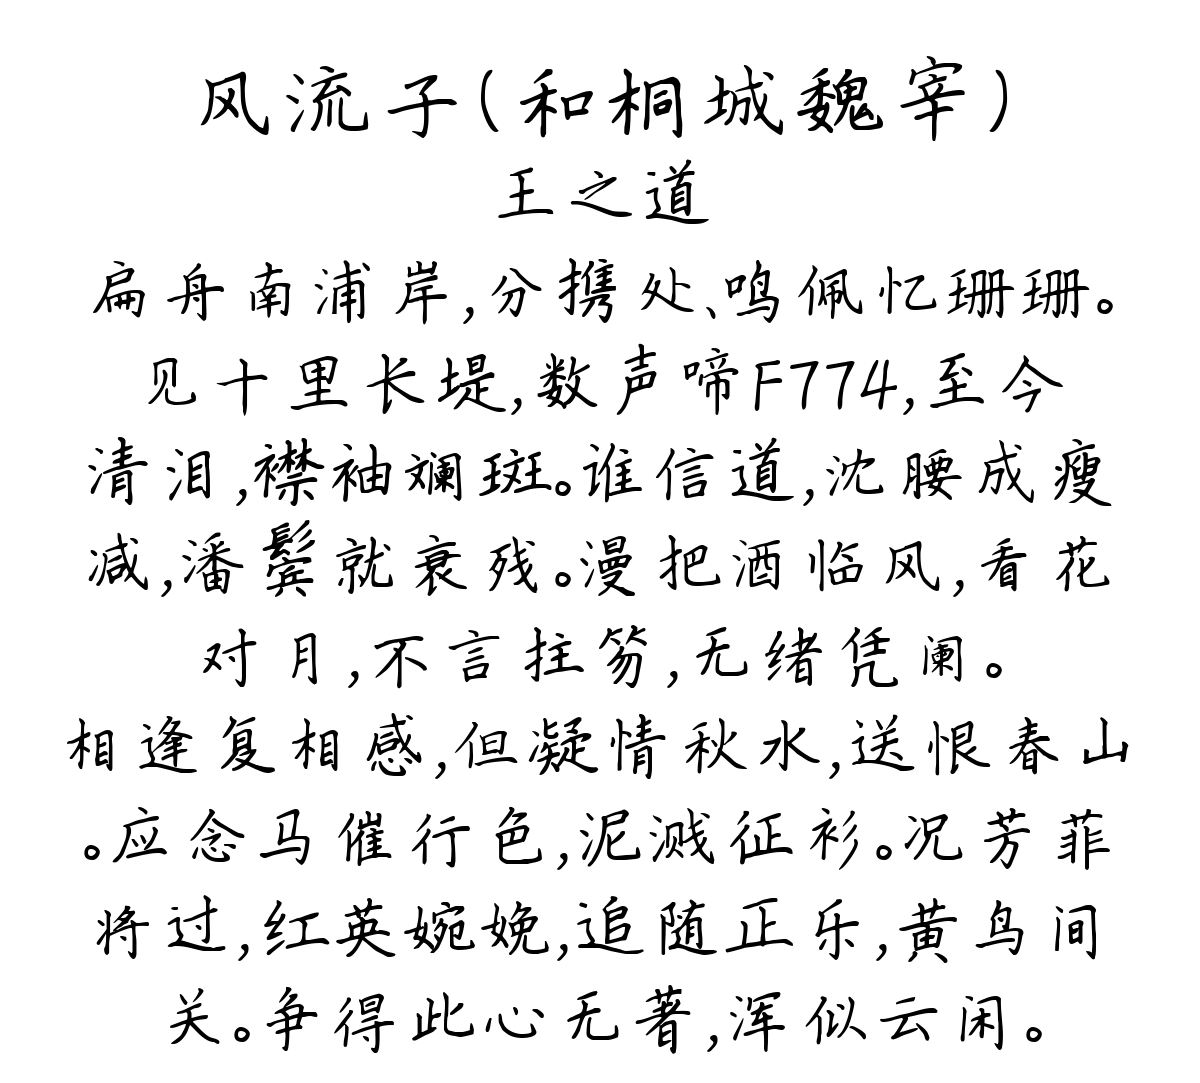 风流子(和桐城魏宰)
王之道
扁舟南浦岸,分携处、鸣佩忆珊珊。
见十里长堤,数声啼F774,至今
清泪,襟袖斓斑。谁信道,沈腰成瘦
减,潘鬓就衰残。漫把酒临风,看花
对月,不言拄笏,无绪凭阑。
相逢复相感,但凝情秋水,送恨春山
。应念马催行色,泥溅征衫。况芳菲
将过,红英婉娩,追随正乐,黄鸟间
关。争得此心无著,浑似云闲。